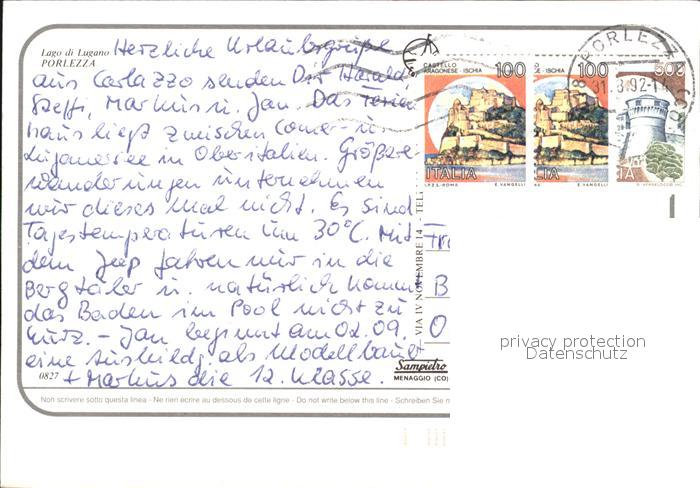 Lago di Lugano
PORLEZZA
Herzliche Urlaubsgrüße
aus Carlazzo senden Dir Harald
Steffi, Markus u. Jan. Das Ferien
haus liegt zwischen Comer- u.
Luganersee in Oberitalien. Größere
wanderungen unternehmen
wir dieses Mal nicht. Es sind
Tagestemperaturen um 30°C. Mit
dem Jeep fahren wir in die
Bergtäler u. natürlich kommt
das Baden im Pool nicht zu
kurz. - Jan beginnt am 02.09.
eine Ausbildg. als Modellbauer
+ Markus die 12. Klasse.
0827
VIA IV NOVEMBRE 14 - TEL
Sampietro
MENAGGIO (CO)
CASTELLO
ARAGONESE - ISCHIA 100
ITALIA
I.P.Z.S.-ROMA E. VANGELLI
ARAGONESE - ISCHIA 100
E. VANGELLI
PORLEZZA
31.8.92-14
B
O
privacy protection
Datenschutz
Non scrivere sotto questa linea - Ne rien écrire au dessous de cette ligne - Do not write below this line - Schreiben Sie n